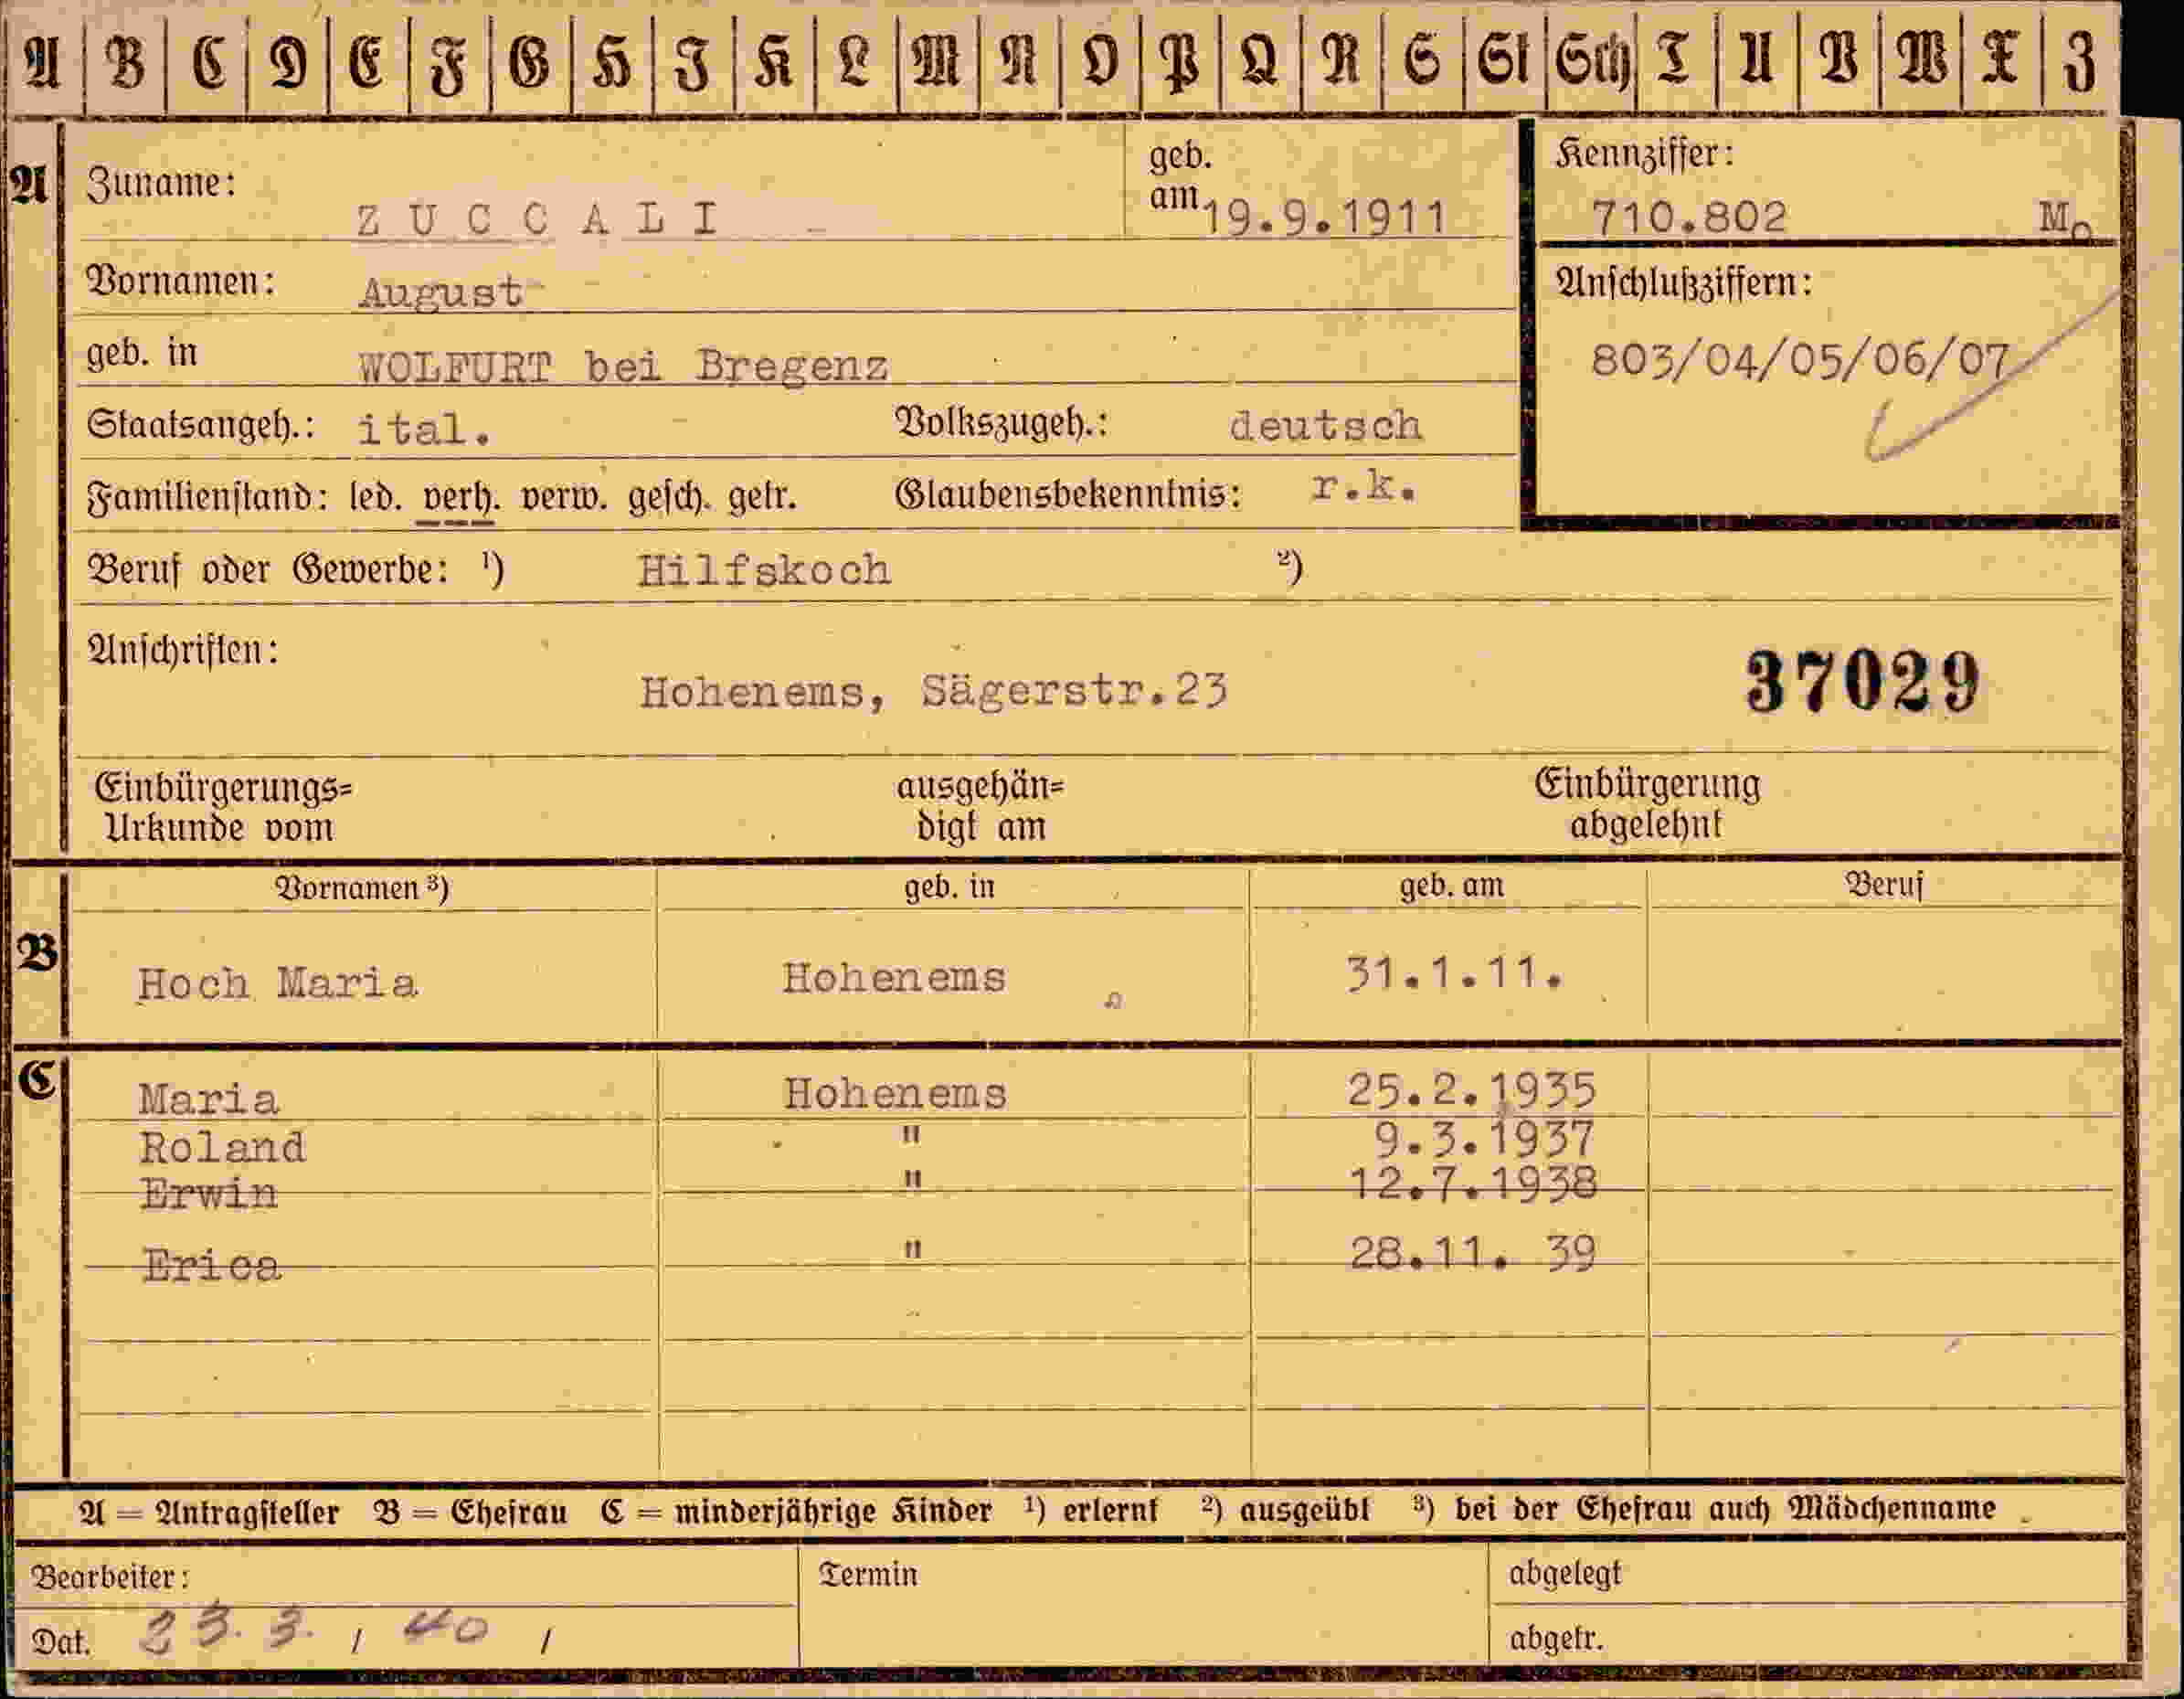 A B C D E F G H I K L M N O P Q R S St Sch T U V W X Z
A Zuname: ZUCCALI geb. am 19.9.1911 Kennziffer: 710.802 Mo
Vornamen: August Anschlußziffern:
geb. in WOLFURT bei Bregenz 803/04/05/06/07
Staatsangeh.: ital. Volkszugeh.: deutsch
Familienstand: led. verh. verw. gesch. getr. Glaubensbekenntnis: r.k.
Beruf oder Gewerbe: ¹) Hilfskoch ²)
Anschriften:
Hohenems, Sägerstr.23 37029
Einbürgerungs= ausgehän= Einbürgerung
Urkunde vom digt am abgelehnt
Vornamen ³) geb. in geb. am Beruf
B Hoch Maria Hohenems 31.1.11.
C Maria Hohenems 25.2.1935
Roland " 9.3.1937
Erwin " 12.7.1938
Erica " 28.11. 39
A = Antragsteller B = Ehefrau C = minderjährige Kinder ¹) erlernt ²) ausgeübt ³) bei der Ehefrau auch Mädchenname
Bearbeiter: Termin abgelegt
Dat. 23.3. / 40 / abgetr.